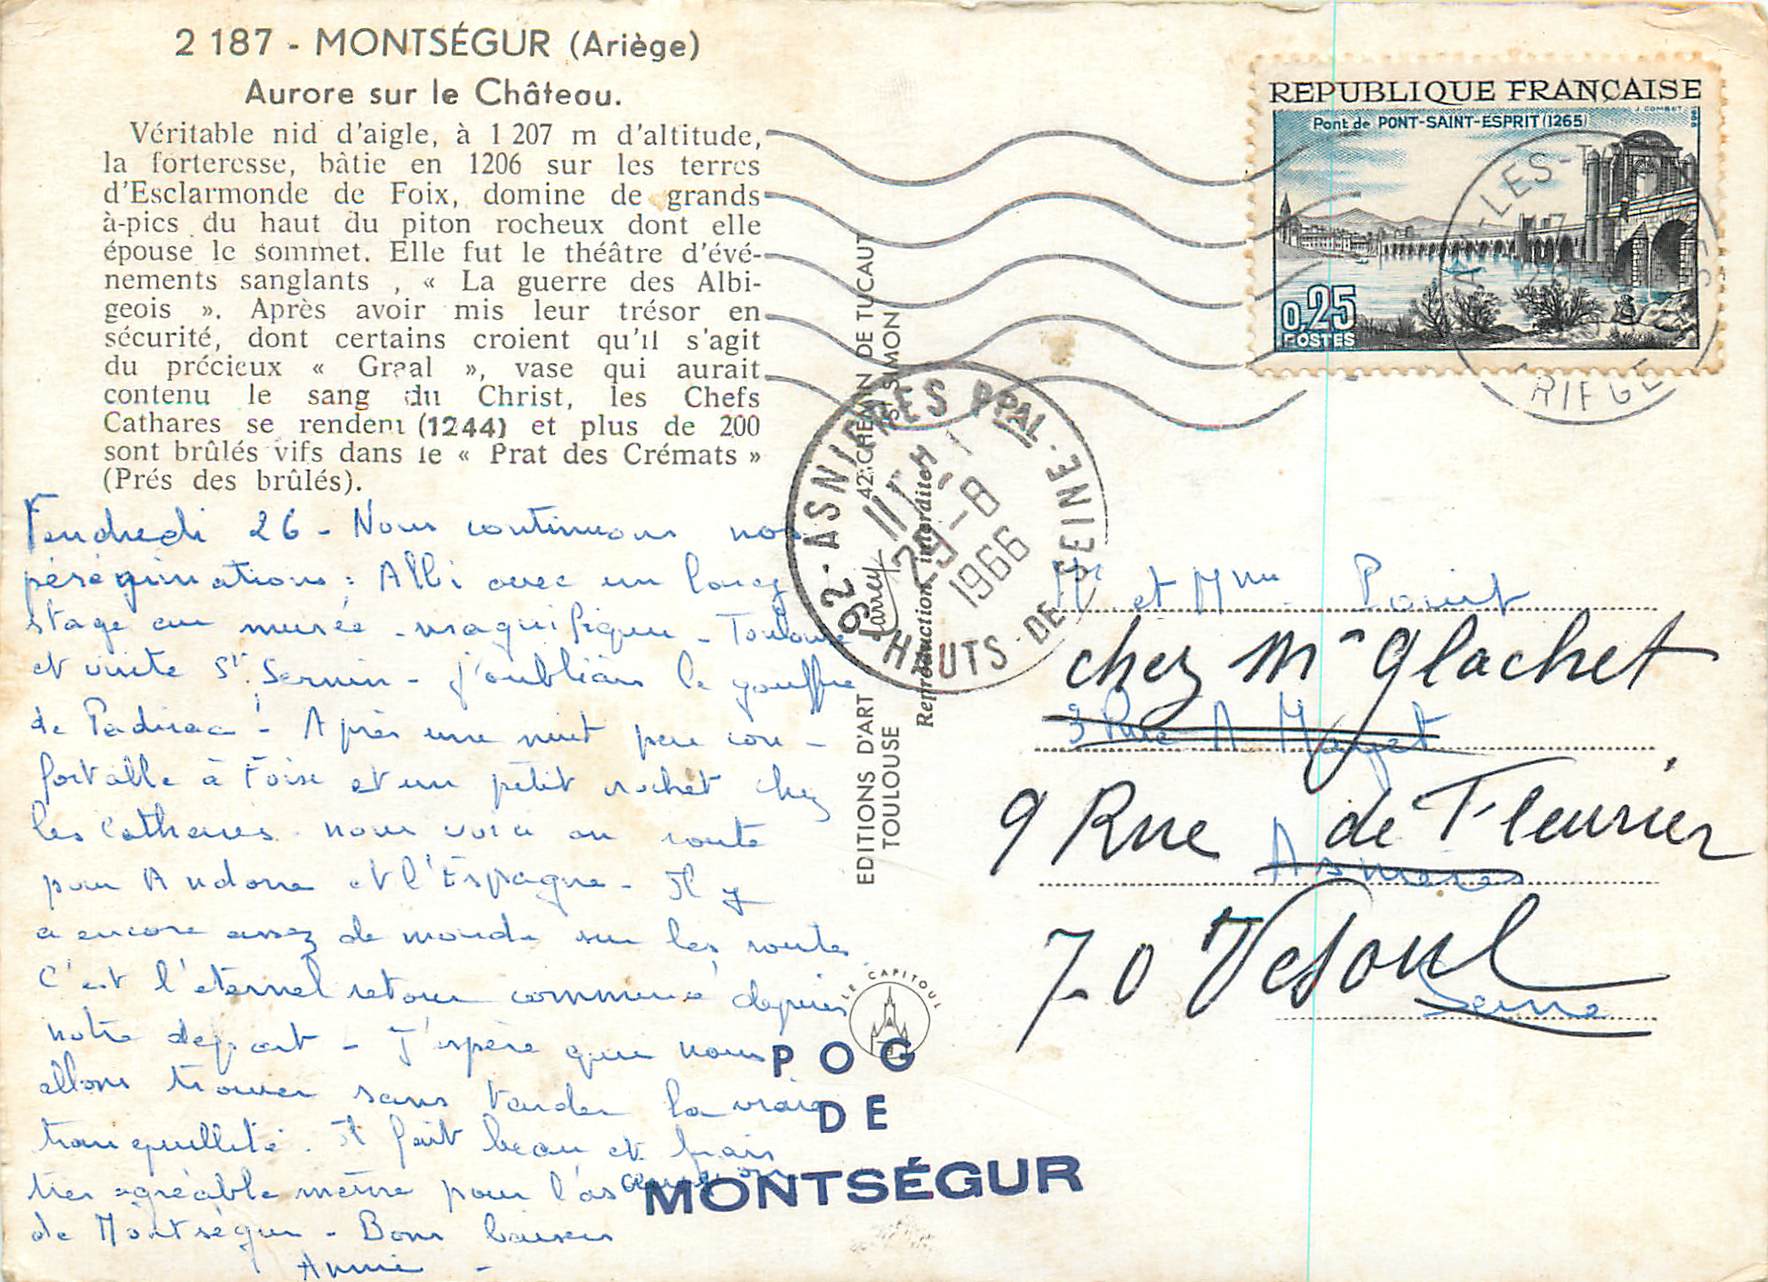 2 187 - MONTSÉGUR (Ariège)
Aurore sur le Château.
Véritable nid d'aigle, à 1 207 m d'altitude,
la forteresse, bâtie en 1206 sur les terres
d'Esclarmonde de Foix, domine de grands
à-pics du haut du piton rocheux dont elle
épouse le sommet. Elle fut le théâtre d'évé-
nements sanglants , « La guerre des Albi-
geois ». Après avoir mis leur trésor en
sécurité, dont certains croient qu'il s'agit
du précieux « Graal », vase qui aurait
contenu le sang du Christ, les Chefs
Cathares se rendent (1244) et plus de 200
sont brûlés vifs dans le « Prat des Crémats »
(Prés des brûlés).
Vendredi 26 - Nous continuons nos
pérégrinations : Albi avec un long
stage au musée - magnifique - Toulouse
et visite St. Sernin - j'oubliais le gouffre
de Padirac - Après une nuit peu con-
fortable à Foix et un petit crochet chez
les Cathares - nous voici en route
pour Andorre et l'Espagne - Il y
a encore assez de monde sur les routes
C'est l'éternel retour commencé depuis
notre départ - J'espère que nous
allons trouver sans tarder la vraie
tranquillité. Il fait beau et frais
très agréable même pour l'ascension
de Montségur - Bons baisers
Annie -
EDITIONS D'ART
TOULOUSE
Larrey
42, CHEMIN DE TUCAUT
ST SIMON
Reproduction interdite
LE CAPITOUL
POG
DE
MONTSÉGUR
92 - ASNIERES PPAL - HAUTS-DE-SEINE
29-8
1966
REPUBLIQUE FRANÇAISE
J. COMBET
Pont de PONT-SAINT-ESPRIT (1265)
0,25
POSTES
ARIEGE
Mr et Mme Point
chez Mr Glachet
3 Rue A Mayet
9 Rue de Fleurier
Asnières
70 Vesoul
Seine